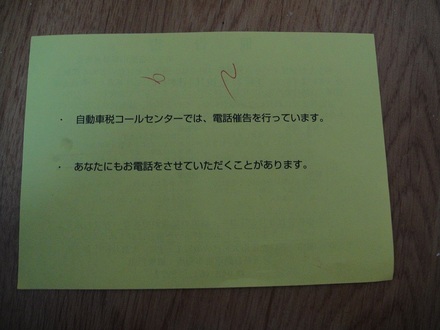 ・ 自動車税コールセンターでは、電話催告を行っています。
・ あなたにもお電話をさせていただくことがあります。